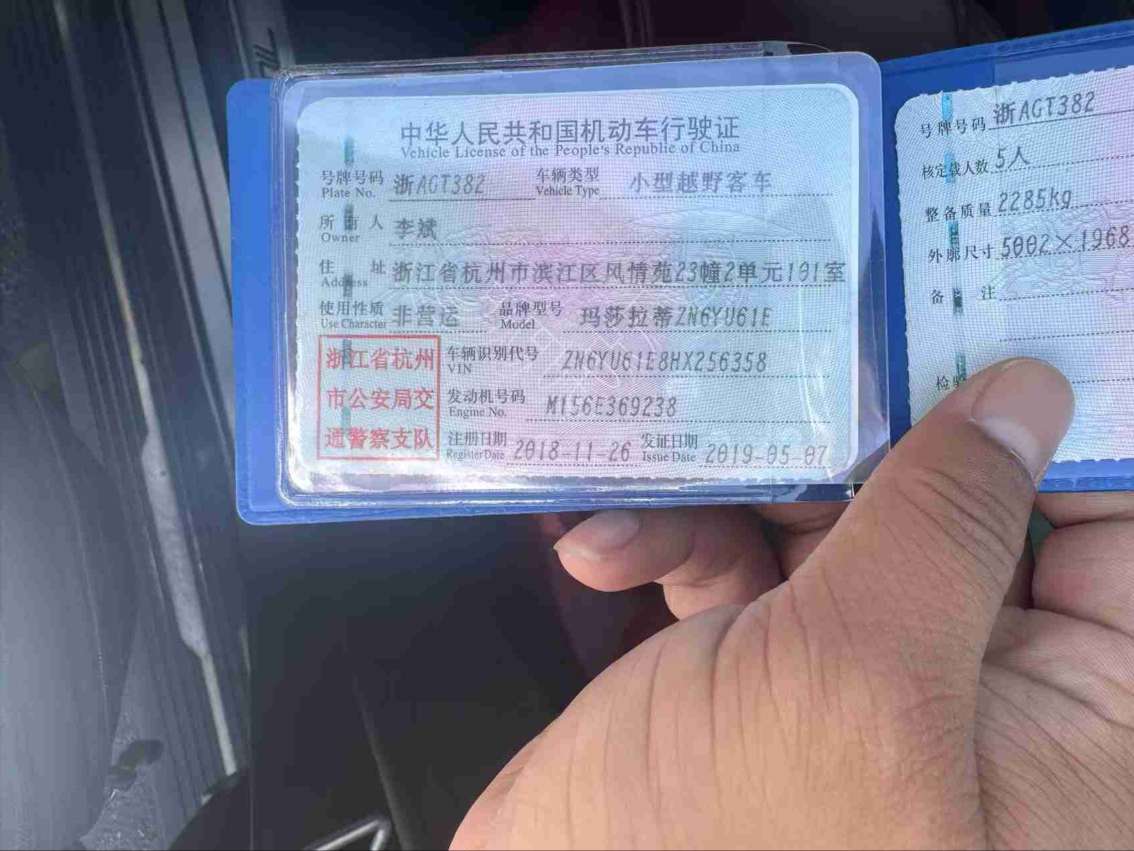 中华人民共和国机动车行驶证
Vehicle License of the People's Republic of China
号牌号码 浙AGT382 车辆类型 小型越野客车
Plate No. Vehicle Type
所有人 李斌
Owner
住址 浙江省杭州市滨江区风情苑23幢2单元191室
Address
使用性质 非营运 品牌型号 玛莎拉蒂ZN6YU61E
Use Character Model
浙江省杭州
市公安局交
通警察支队
车辆识别代号 ZN6YU61E8HX256358
VIN
发动机号码 M156E369238
Engine No.
注册日期 2018-11-26 发证日期 2019-05-07
Register Date Issue Date
号牌号码 浙AGT382
核定载人数 5人
整备质量 2285kg
外廓尺寸 5002×1968
备注
检验